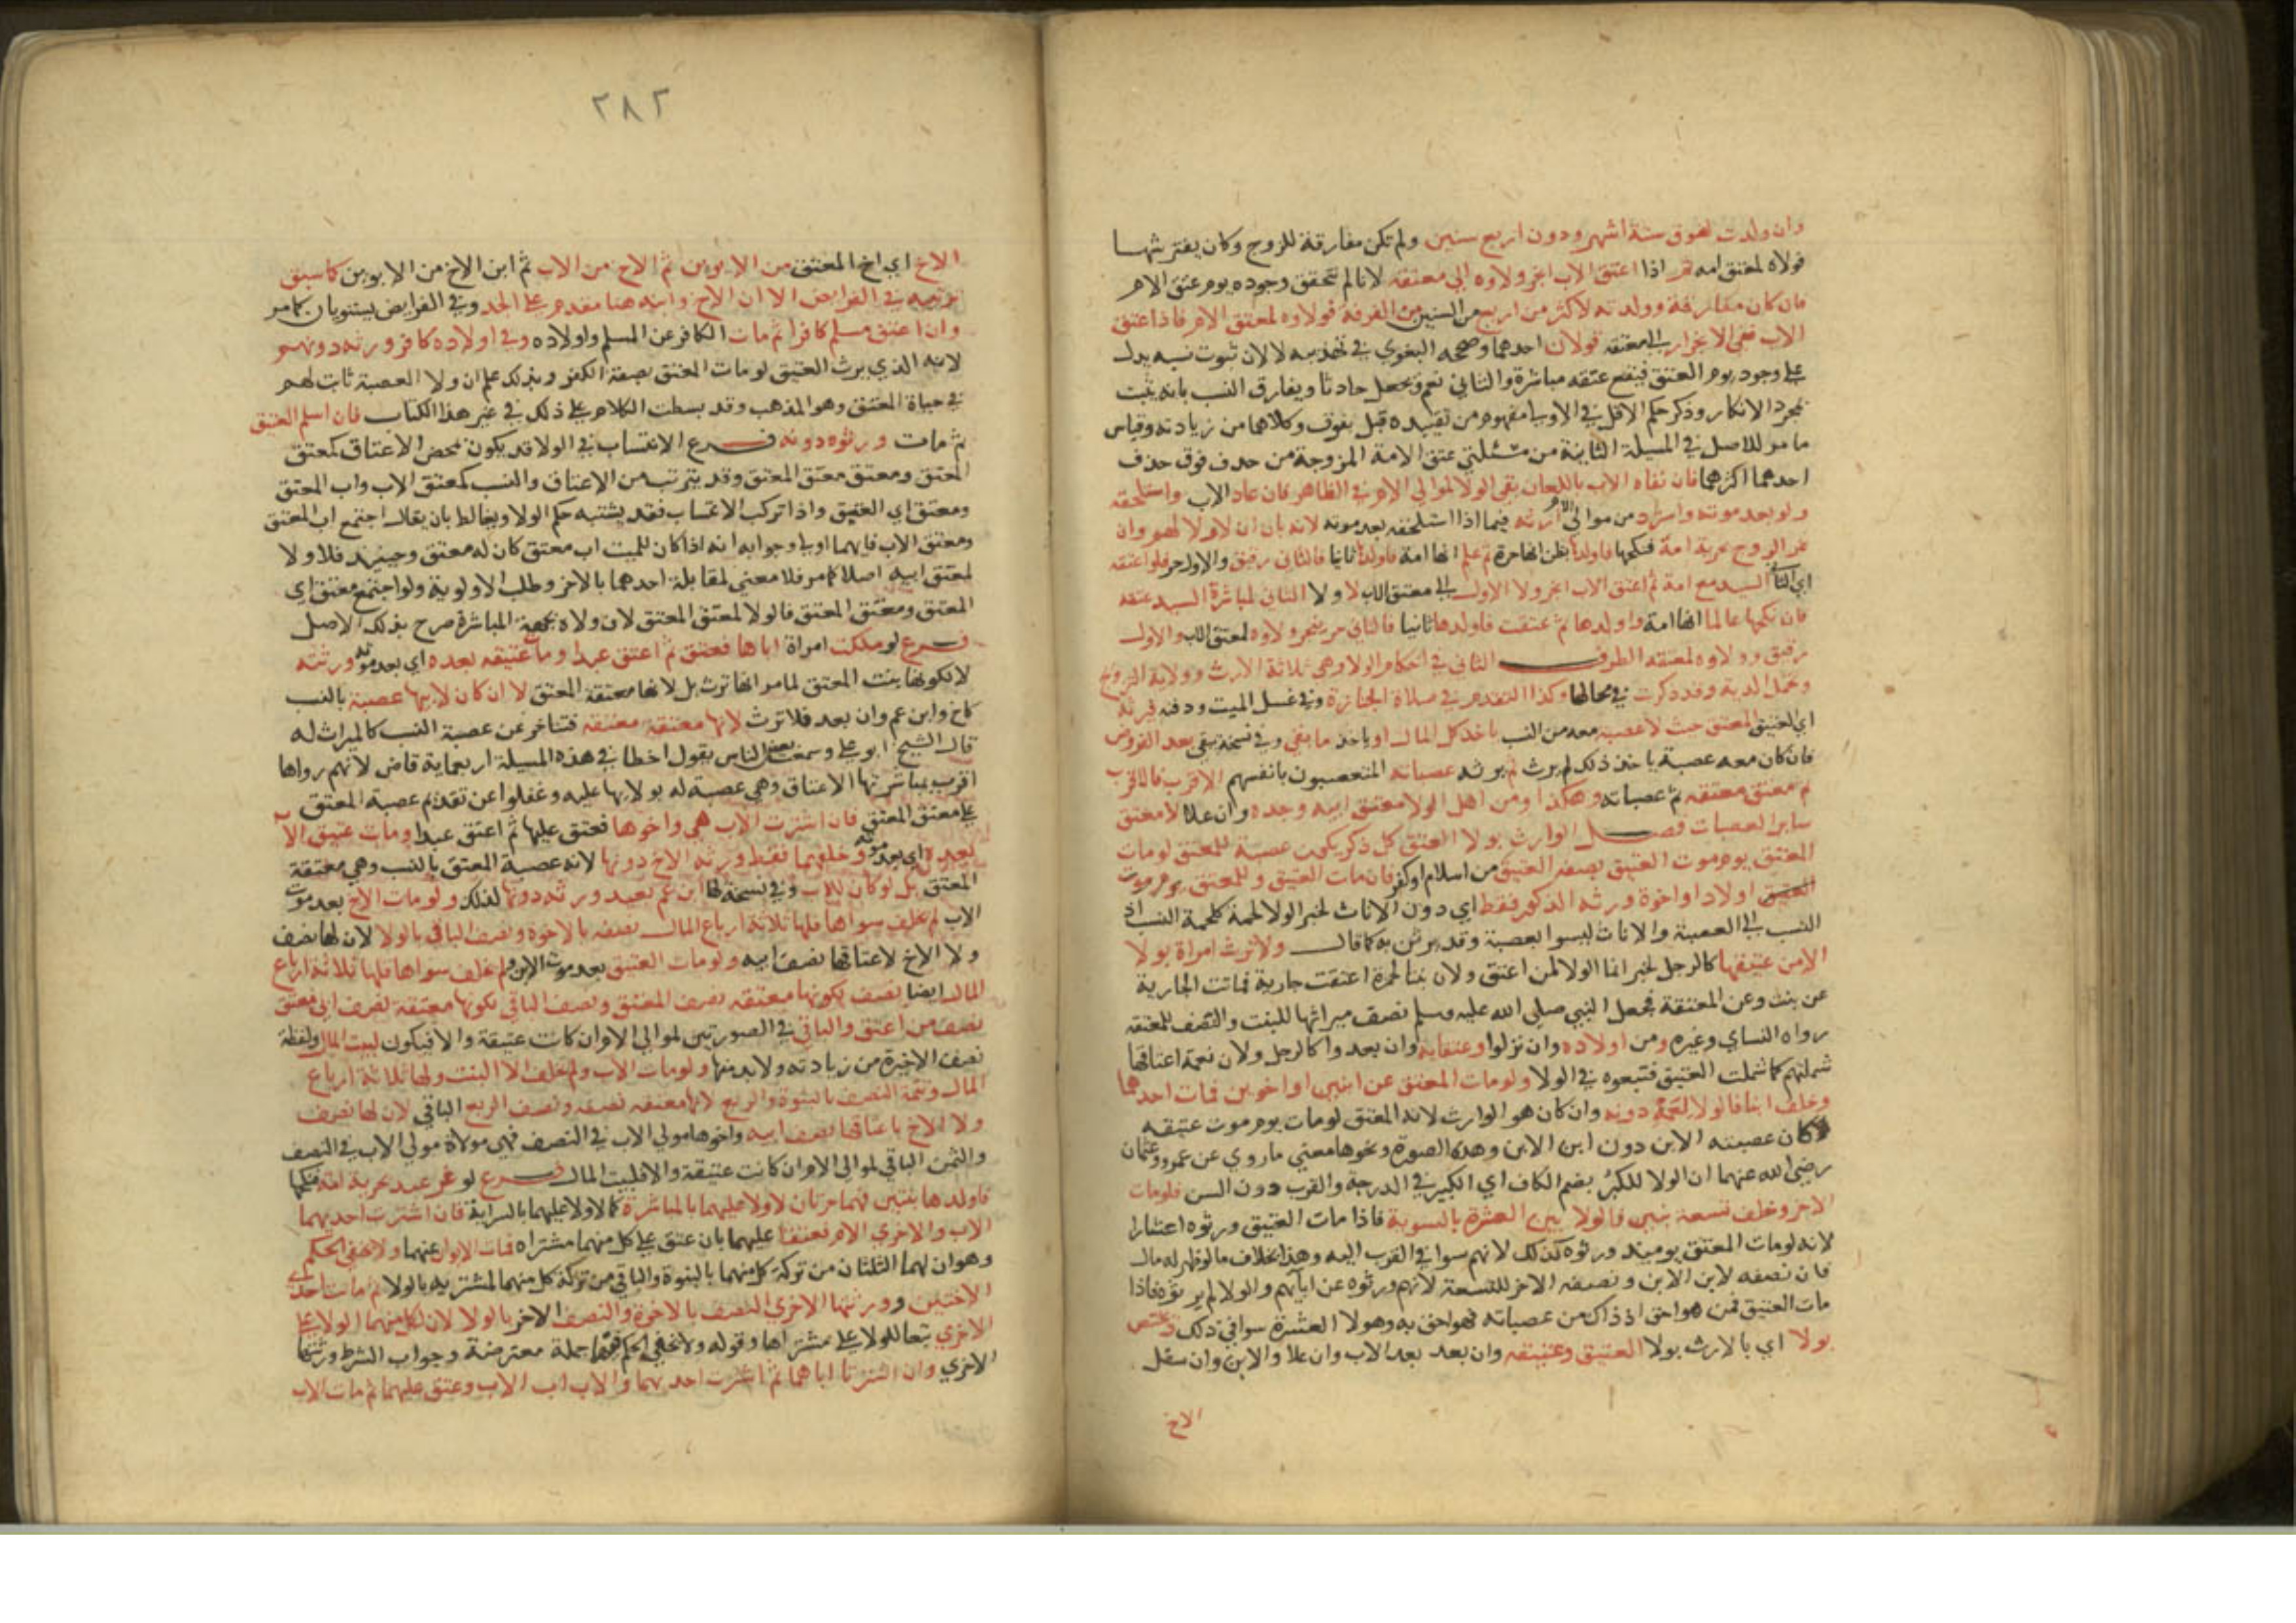 وان ولدت لفوق ستة اشهر ودون اربع سنين ولم تكن مفارقة للزوج وكان يفترشها
فولاه لمعتق امه ثم اذا اعتق الاب انجر ولاوه الى معتقه لانا لم نتحقق وجوده يوم عتق الام
فان كان مفارقة وولدته لاكثر من اربع من السنين من الفرقة فولاوه لمعتق الام فاذا اعتق
الاب ففى الانجرار الى معتقه قولان احدهما وصححه البغوي في تهذيبه لا لان ثبوت نسبه يدل
على وجوده يوم العتق فيقع عتقه مباشرة والثاني نعم ويجعل حادثا ويفارق النسب بانه يثبت
بمجرد الانكار وذكر حكم الاقل في الاولى مفهوم من تقييده قبل بفوق وكلاهما من زيادته وقياس
ما مر للاصل في المسيلة الثانية من مسئلتي عتق الامة المزوجة من حذف فوق حذف
احدهما اكثرهما فان نفاه الاب باللعان بقي الولا لموالي الام في الظاهر فان عاد الاب واستلحقه
ولو بعد موته واسترد من موالي الام ارثه فيما اذا استلحقه بعد موته لانه بان ان لا ولا لهم وان
غر الزوج بحرية امة فنكحها فاولدها بظن انها حرة ثم علم انها امة فاولدها ثانيا فالثاني رقيق والاول حر فلو اعتقه
اي الثاني السيد مع امة ثم اعتق الاب انجر ولا الاول الى معتق الاب لا ولا الثاني لمباشرة السيد عتقه
فان نكحها عالما انها امة واولدها ثم عتقت فاولدها ثانيا فالثاني حر ينجر ولاوه لمعتق الاب والاول
رقيق وولاوه لمعتقه الطرف الثاني في احكام الولا وهي ثلاثة الارث وولاية التزويج
وتحمل الدية وقد ذكرت في محالها وكذا التقدم في صلاة الجنازة وفي غسل الميت ودفنه فيرثه
اي العتيق المعتق حيث لا عصبة معه من النسب ياخذ كل المال او ياخذ ما بقي وفي نسخة يبقى بعد الفروض
فان كان معه عصبة ياخذ ذلك لم يرث ثم يرثه عصباته المتعصبون بانفسهم الاقرب فالاقرب
ثم معتق معتقه ثم عصباته وهكذا ومن اهل الولا معتق ابيه وجده وان علا لا معتق
ساير العصبات فصل الوارث بولا العتق كل ذكر يكون عصبة للمعتق لو مات
المعتق يوم موت العتيق بصفة العتيق من اسلام او كفر فان مات العتيق وللمعتق يوم موت
العتيق اولاد او اخوة ورثه الذكور فقط اي دون الاناث لخبر الولا لحمة كلحمة النسب اذ
النسب الى العصبة والاناث ليسوا بعصبة وقد يرثن به كما قال ولا ترث امراة بولا
الا من عتيقها كالرجل لخبر انما الولا لمن اعتق ولان بنتا لحمزة اعتقت جارية فماتت الجارية
عن بنت وعن المعتقة فجعل النبي صلى الله عليه وسلم نصف ميراثها للبنت والنصف للمعتقة
رواه النساي وغيره ومن اولاده وان نزلوا وعتقايه وان بعدوا كالرجل ولان نعمة اعتاقها
شملتهم كما شملت العتيق فتبعوه في الولا ولو مات المعتق عن ابنين او اخوين فمات احدهما
وخلف ابنا فالولا لعمه دونه وان كان هو الوارث لانه المعتق لو مات يوم موت عتيقه
كان عصبته الابن دون ابن الابن وهذه الصورة ونحوها معنى ما روي عن عمر وعثمان
رضي الله عنهما ان الولا للكبر بضم الكاف اي الكبير في الدرجة والقرب دون السن فلو مات
الاخر وخلف تسعة بنين فالولا بين العشرة بالسوية فاذا مات العتيق ورثوه اعشارا
لانه لو مات المعتق يوميذ ورثوه كذلك لانهم سوا في القرب اليه وهذا بخلاف ما لو ظهر له مال
فان نصفه لابن الابن ونصفه الاخر للتسعة لانهم ورثوه عن ابايهم والولا لم يرثوه فاذا
مات العتيق فمن هو احق اذ ذاك من عصباته فهو احق به وهولا العشرة سوا في ذلك ويختص
بولا اي بالارث بولا العتيق وعتيقه وان بعد بعد الاب وان علا والابن وان سفل
الاخ
٢٨٢
الاخ اي اخ المعتق من الابوين ثم الاخ من الاب ثم ابن الاخ من الابوين كما سبق
ترتيبه في الفرايض الا ان الاخ وابنه هنا مقدم على الجد وفي الفرايض يستويان كما مر
وان اعتق مسلم كافرا ثم مات الكافر عن المسلم واولاده وفي اولاده كافر ورثه دونهم
لانه الذي يرث العتيق لو مات المعتق بصفة الكفر وبذلك علم ان ولا العصبة ثابت لهم
في حياة المعتق وهو المذهب وقد بسطت الكلام على ذلك في غير هذا الكتاب فان اسلم العتيق
ثم مات ورثوه دونه فرع الانتساب في الولا قد يكون بمحض الاعتاق كمعتق
المعتق ومعتق معتق المعتق وقد يتركب من الاعتاق والنسب كمعتق الاب واب المعتق
ومعتق اي العتيق واذا تركب الانتساب فقد يشتبه حكم الولا ويغالط بان يقال اجتمع اب المعتق
ومعتق الاب فايهما اولى وجوابه انه اذا كان للميت اب معتق كان له معتق وحينيذ فلا ولا
لمعتق ابيه اصلا كما مر فلا معنى لمقابلة احدهما بالاخر وطلب الاولوية ولو اجتمع معتق ابي
المعتق ومعتق المعتق فالولا لمعتق المعتق لان ولاه بجهة المباشرة صرح بذلك الاصل
فرع لو ملكت امراة اباها فعتق ثم اعتق عبدا ومات عتيقه بعده اي بعد موته ورثته
لا لكونها بنت المعتق لما مر انها ترث بل لانها معتقة المعتق لا ان كان لابيها عصبة بالنسب
كاخ وابن عم وان بعد فلا ترث لانها معتقة معتقه فتتاخر عن عصبة النسب كالميراث له
قال الشيخ ابو علي وسمعت بعض الناس يقول اخطا في هذه المسيلة اربعماية قاض لانهم رواها
اقرب بمباشرتها الاعتاق وهي عصبة له بولايها عليه وغفلوا عن تقديم عصبة المعتق
على معتق المعتق فان اشترت الاب هي واخوها فعتق عليها ثم اعتق عبدا ومات عتيق الاب
بعده اي بعد موته وخلفهما فقط ورثه الاخ دونها لانه عصبة المعتق بالنسب وهي معتقة
المعتق بل لو كان للاب وفي نسخة لها ابن عم بعيد ورثه دونها لذلك ولو مات الاخ بعد موت
الاب لم يخلف سواها فلها ثلاثة ارباع المال نصفه بالاخوة ونصف الباقي بالولا لان لها نصف
ولا الاخ لاعتاقها نصف ابيه ولو مات العتيق بعد موت الابن ولم يخلف سواها فلها ثلاثة ارباع
المال ايضا نصف بكونها معتقة نصف المعتق ونصف الباقي بكونها معتقة نصف ابي معتق
نصف من اعتق والباقي في الصورتين لموالي الام ان كانت عتيقة والا فيكون لبيت المال ولفظة
نصف الاخيرة من زيادته ولا بد منها ولو مات الاب ولم يخلف الا البنت ولها ثلاثة ارباع
المال وتتمة النصف بالبنوة والربع لانها معتقة نصفه ونصف الربع الباقي لان لها نصف
ولا الاخ باعتاقها نصف ابيه واخوها مولى الاب في النصف فهي مولاة مولى الاب في النصف
والثمن الباقي لموالي الام ان كانت عتيقة والا فلبيت المال فرع لو غر عبد بحرية امة فنكحها
فاولدها بنتين فهما حرتان لا ولا عليهما بالمباشرة كما لا ولا عليهما بالسراية فان اشترت احديهما
الاب والاخرى الام فعتقا عليهما بان عتق على كل منهما مشتراه فمات الابوان عنهما ولا يخفى الحكم
وهو ان لهما الثلثان من تركة كل منهما بالبنوة والباقي من تركة كل منهما لمشتريه بالولا ثم ماتت احدى
الاختين وورثتها الاخرى النصف بالاخوة والنصف الاخر بالولا لان لكل منهما الولا على
الاخرى تبعا للولا على مشتراها وقوله ولا يخفى الحكم فيهما جملة معترضة وجواب الشرط ورثتها
الاخرى وان اشترتا اباهما ثم اشترت احديهما والاب اب الاب وعتق عليهما ثم مات الاب